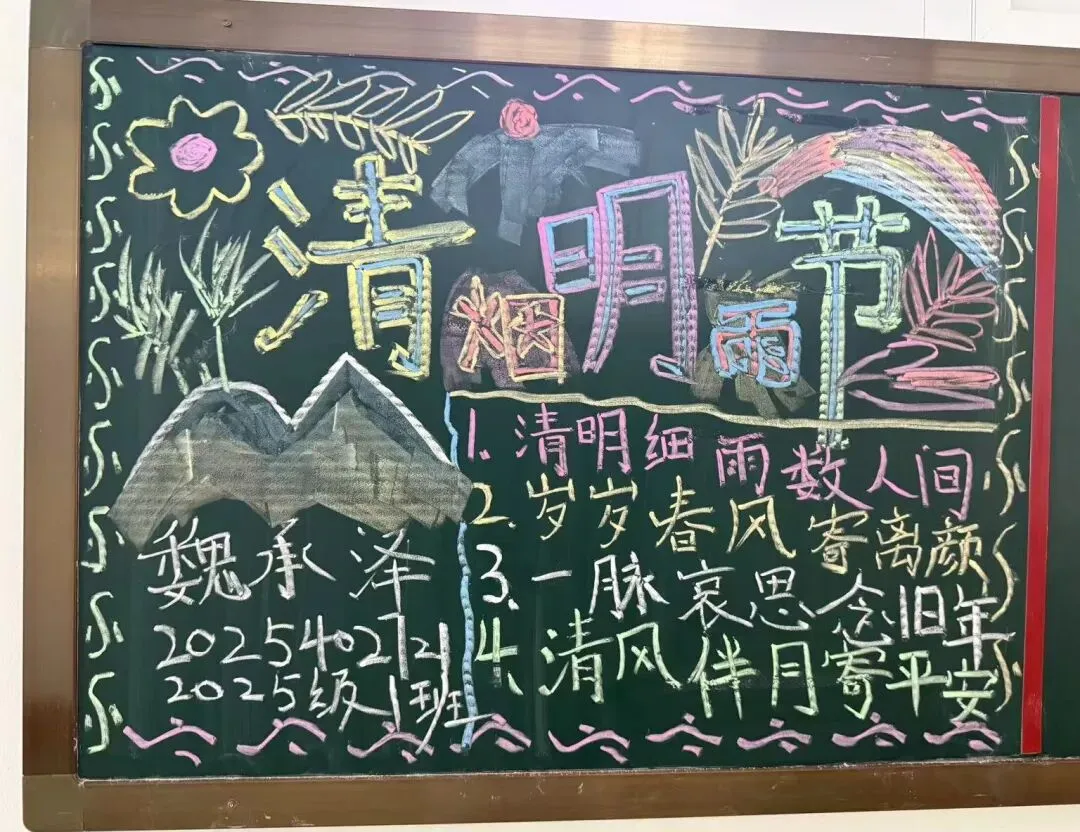 清明节
烟雨
1. 清明细雨数人间
2. 岁岁春风寄离颜
3. 一脉哀思念旧年
4. 清风伴月寄平安
魏承泽
2025402721
2025级1班